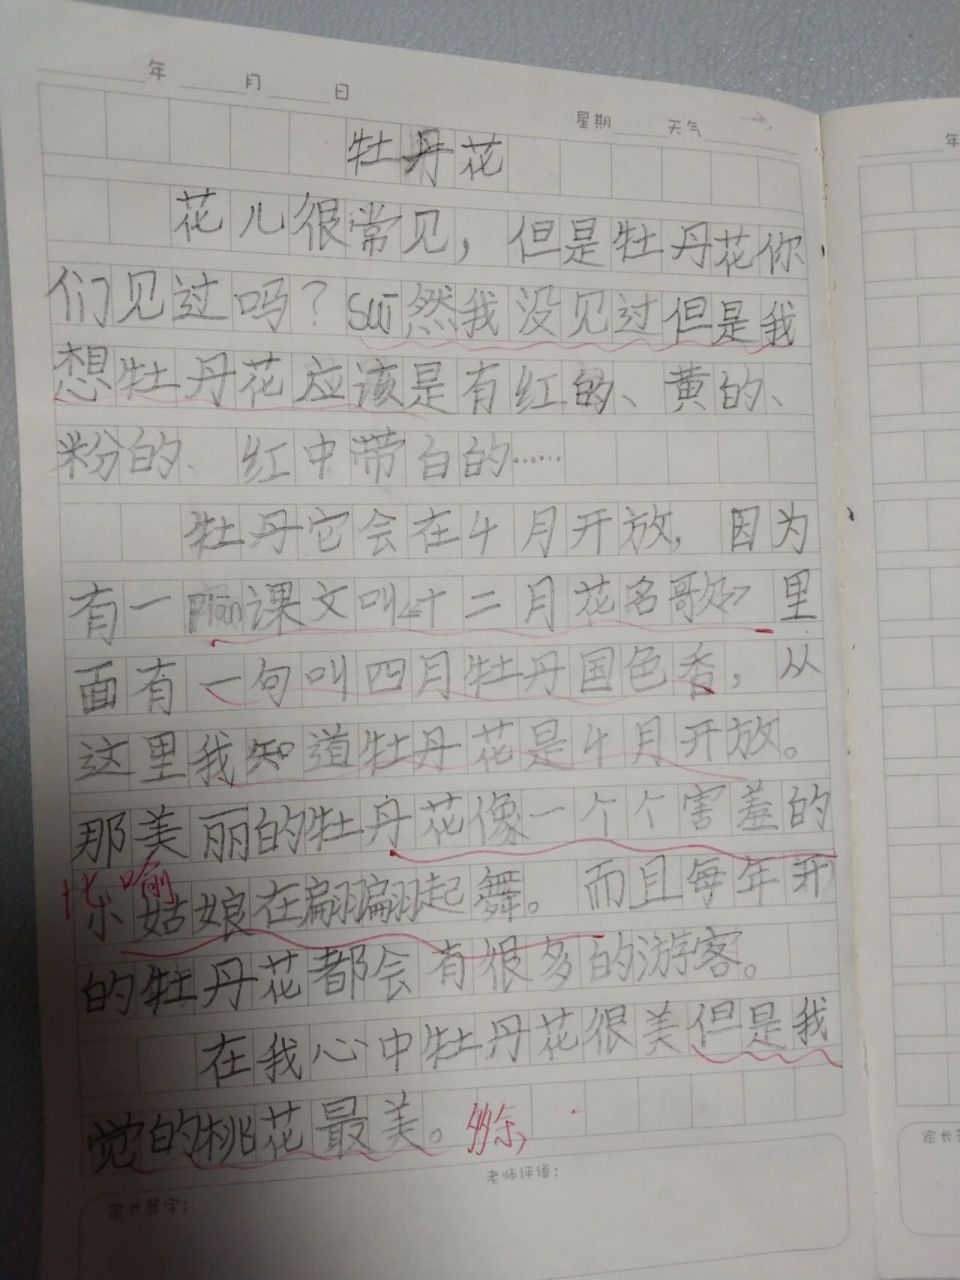 年 月 日
星期 天气
牡丹花
花儿很常见，但是牡丹花你
们见过吗？sui然我没见过但是我
想牡丹花应该是有红的、黄的、
粉的、红中带白的……
牡丹它会在4月开放，因为
有一pian课文叫《十二月花名歌》里
面有一句叫四月牡丹国色香，从
这里我知道牡丹花是4月开放。
那美丽的牡丹花像一个个害羞的
比喻
小姑娘在翩翩起舞。而且每年开
的牡丹花都会有很多的游客。
在我心中牡丹花很美但是我
觉的桃花最美。多余
老师评语：
家长签字：
年